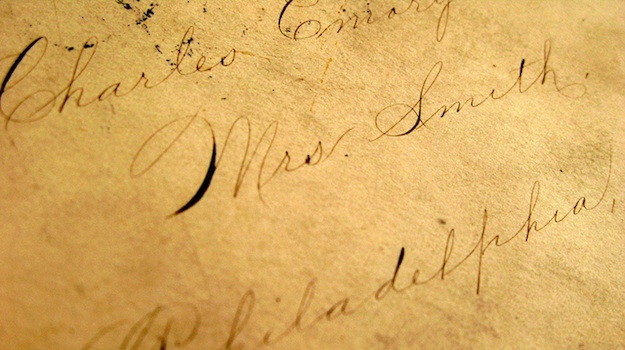 Charles Emory
Mrs. Smith.
Philadelphia,